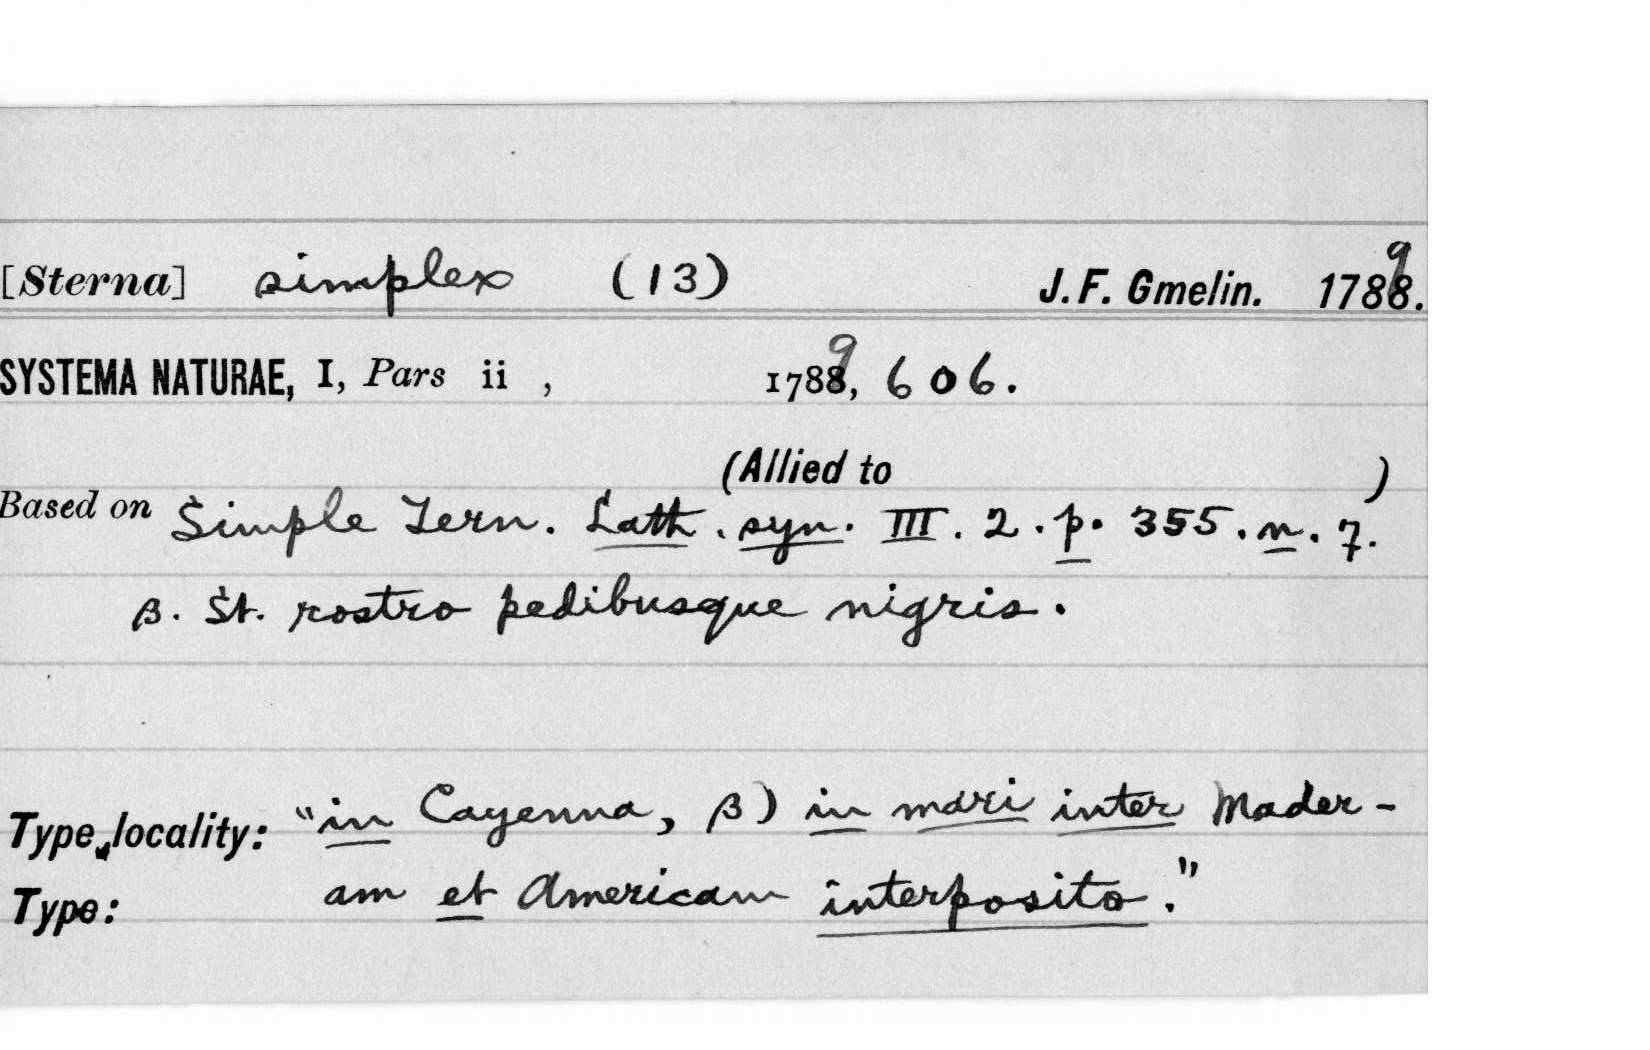 [Sterna] simplex (13) J. F. Gmelin. 1789.
SYSTEMA NATURAE, I, Pars ii , 1789, 606.
(Allied to )
Based on Simple Tern. Lath. syn. III. 2. p. 355. n. 7.
β. St. rostro pedibusque nigris.
Type locality: "in Cayenna, β) in mari inter Mader-
Type: am et Americam interposito."